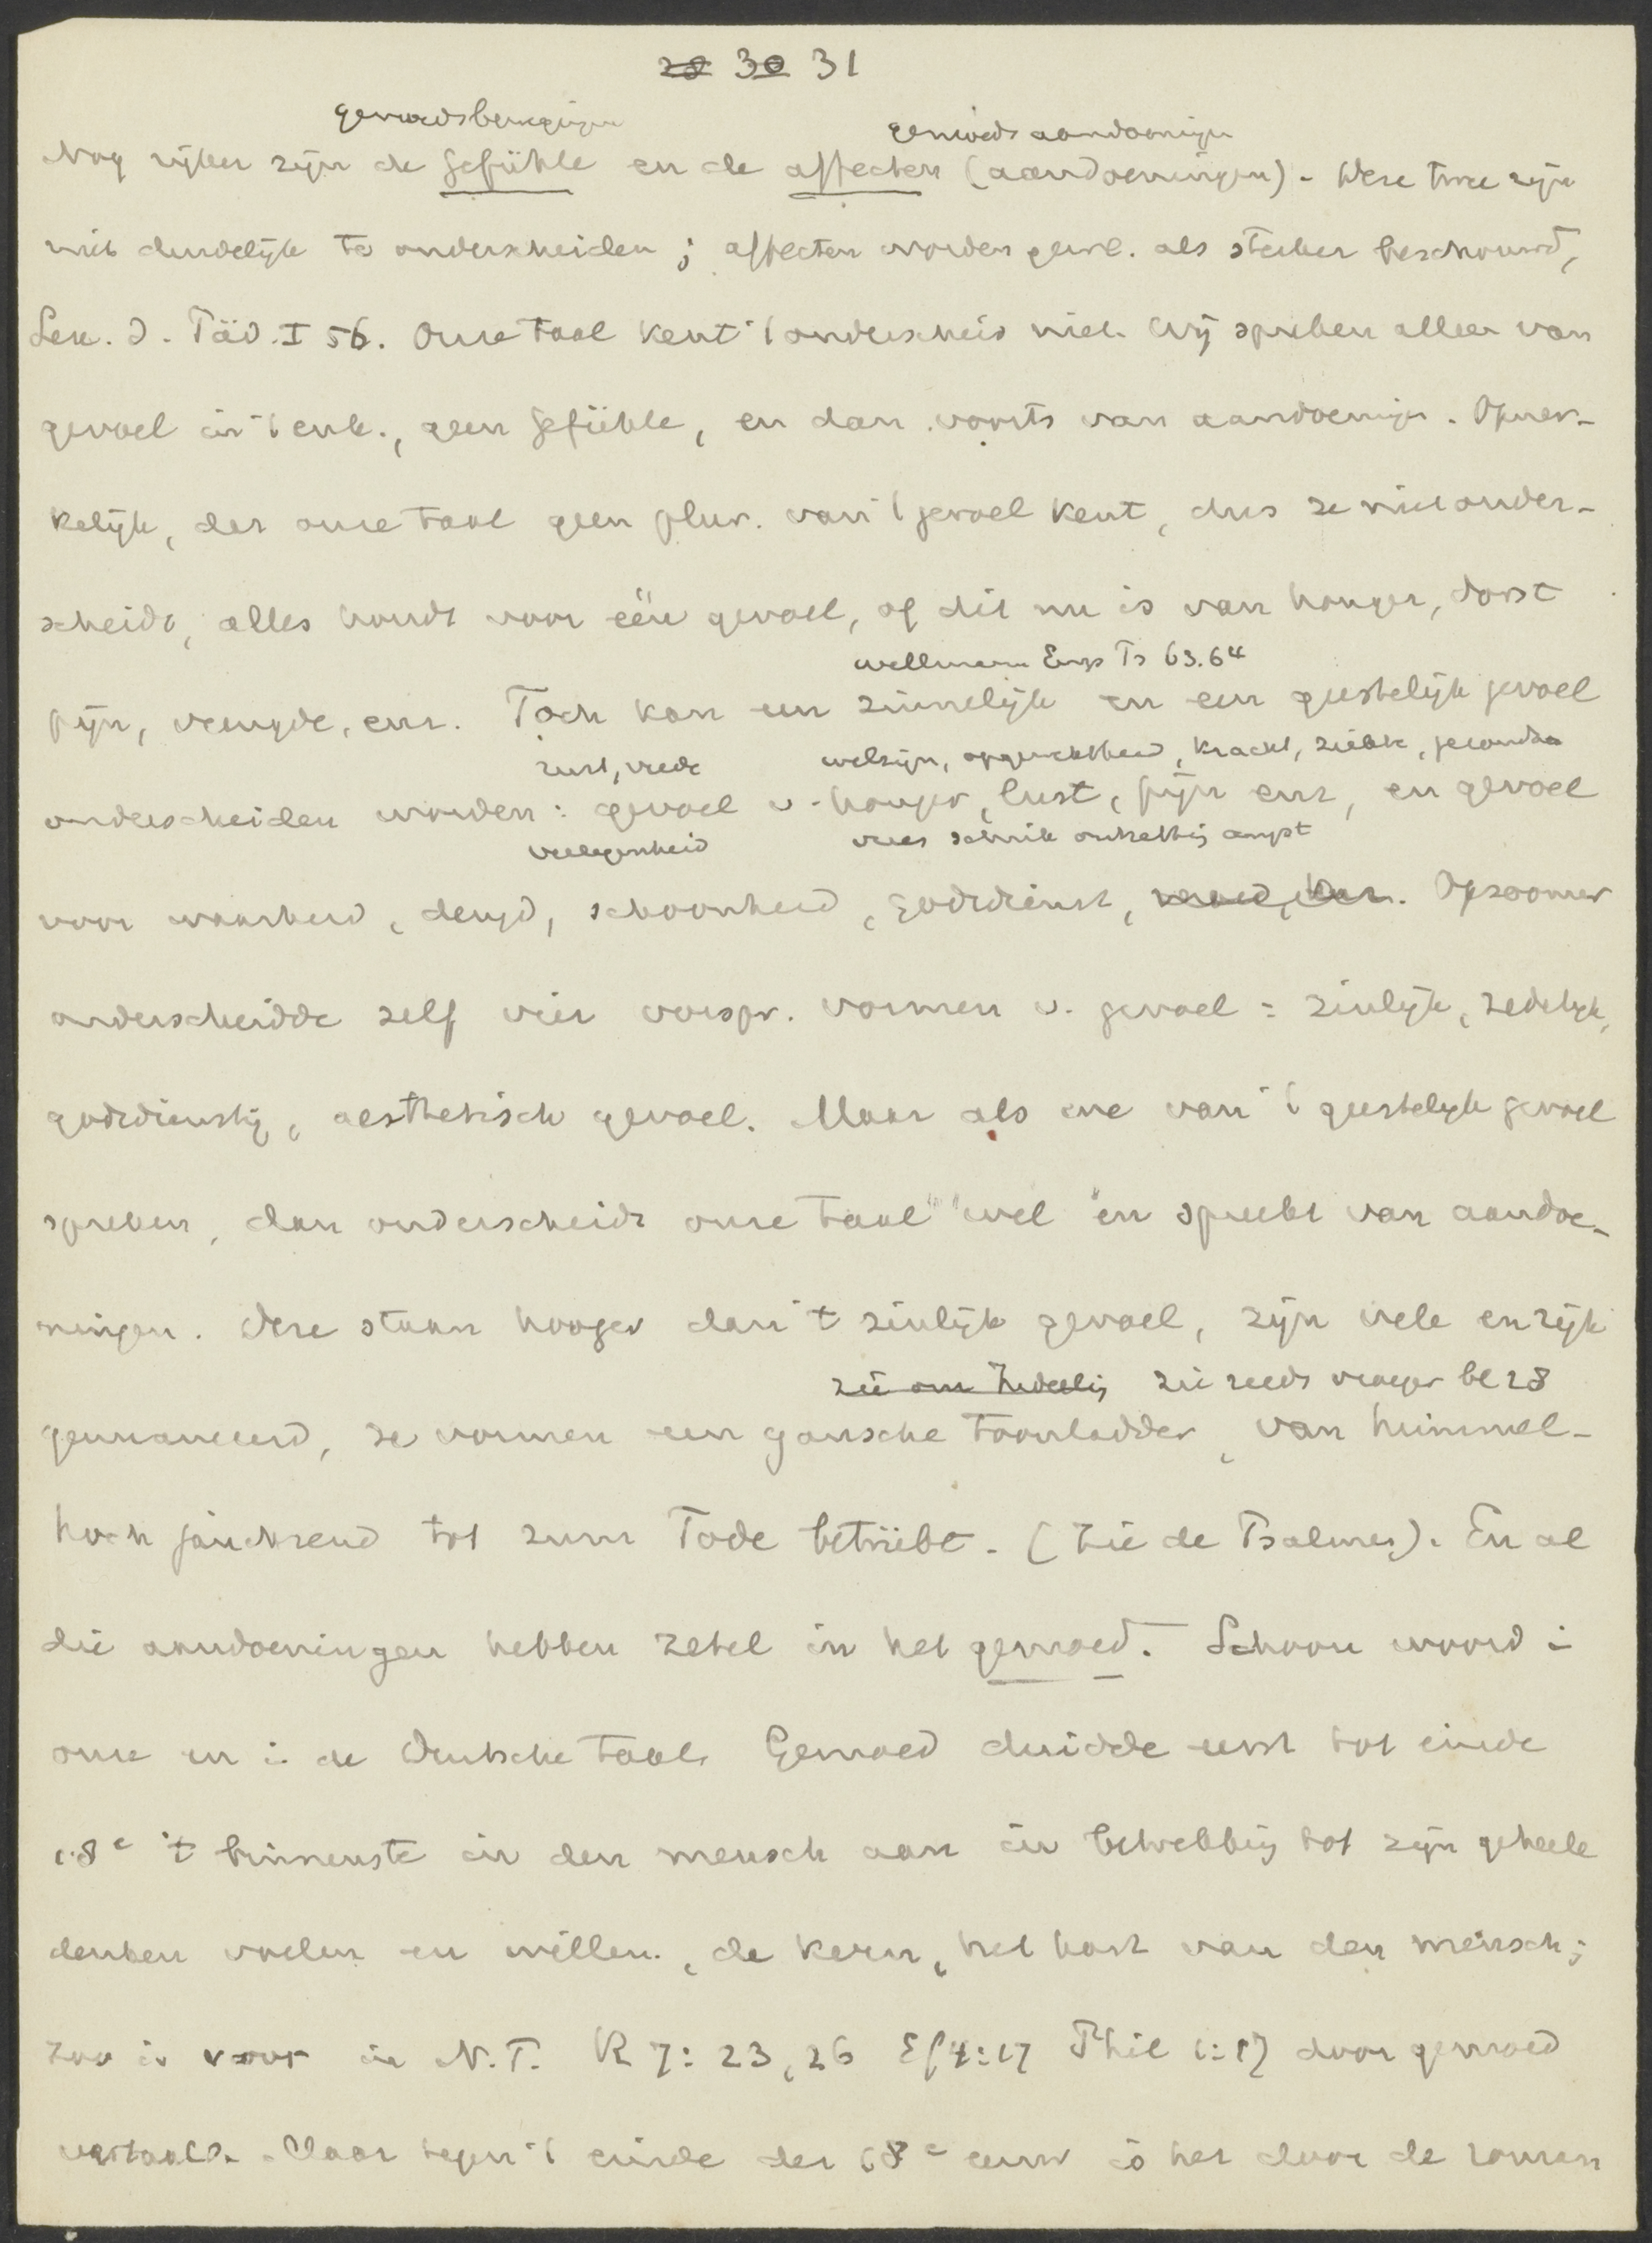 28 30 31
gemoedsbewegingen gemoedsaandoeningen
Nog rijker zijn de Gefühle en de affecten (aandoeningen). Deze twee zijn
niet duidelijk te onderscheiden; affecten worden gew. als sterker beschouwd,
Lex. d. Päd. I 56. Onze taal kent 't onderscheid niet. Wij spreken alleen van
gevoel in 't enk., geen Gefühle, en dan voorts van aandoeningen. Opmer-
kelijk, dat onze taal geen plur. van 't gevoel kent, dus ze niet onder-
scheidt, alles houdt voor één gevoel, of dit nu is van honger, dorst
wellmann Ps 63.64
pijn, vreugde, enz. Toch kan een zinnelijk en een geestelijk gevoel
rust, vrede welzijn, opgewektheid, kracht, ziekte, gezondh
onderscheiden worden: gevoel v. honger, lust, pijn enz, en gevoel
verlegenheid vrees schrik angst
voor waarheid, deugd, schoonheid, godsdienst, Opzoomer
onderscheidde zelf vier oorspr. vormen v. gevoel: zinlijk, zedelijk,
godsdienstig, aesthetisch gevoel. Maar als we van 't geestelijk gevoel
spreken, dan onderscheidt onze taal wel en spreekt van aandoe-
ningen. Deze staan hooger dan 't zinlijk gevoel, zijn vele en rijk
zie reeds vroeger bl 28
genuanceerd, ze vormen een gansche toonladder, van himmel-
hoch jauchzend tot zum Tode betrübt. (Zie de Psalmen). En al
die aandoeningen hebben zetel in het gemoed. Schoon woord i
onze en i de Duitsche taal. Gemoed duidde eerst tot einde
18e 't binnenste in den mensch aan in betrekking tot zijn geheele
denken voelen en willen, de kern, het hart van den mensch;
zoo is νους in N.T. R 7: 23, 26 Ef 4:17 Phil 1:17 door gemoed
vertaald. Maar tegen 't einde der 18e eeuw is het door de roman